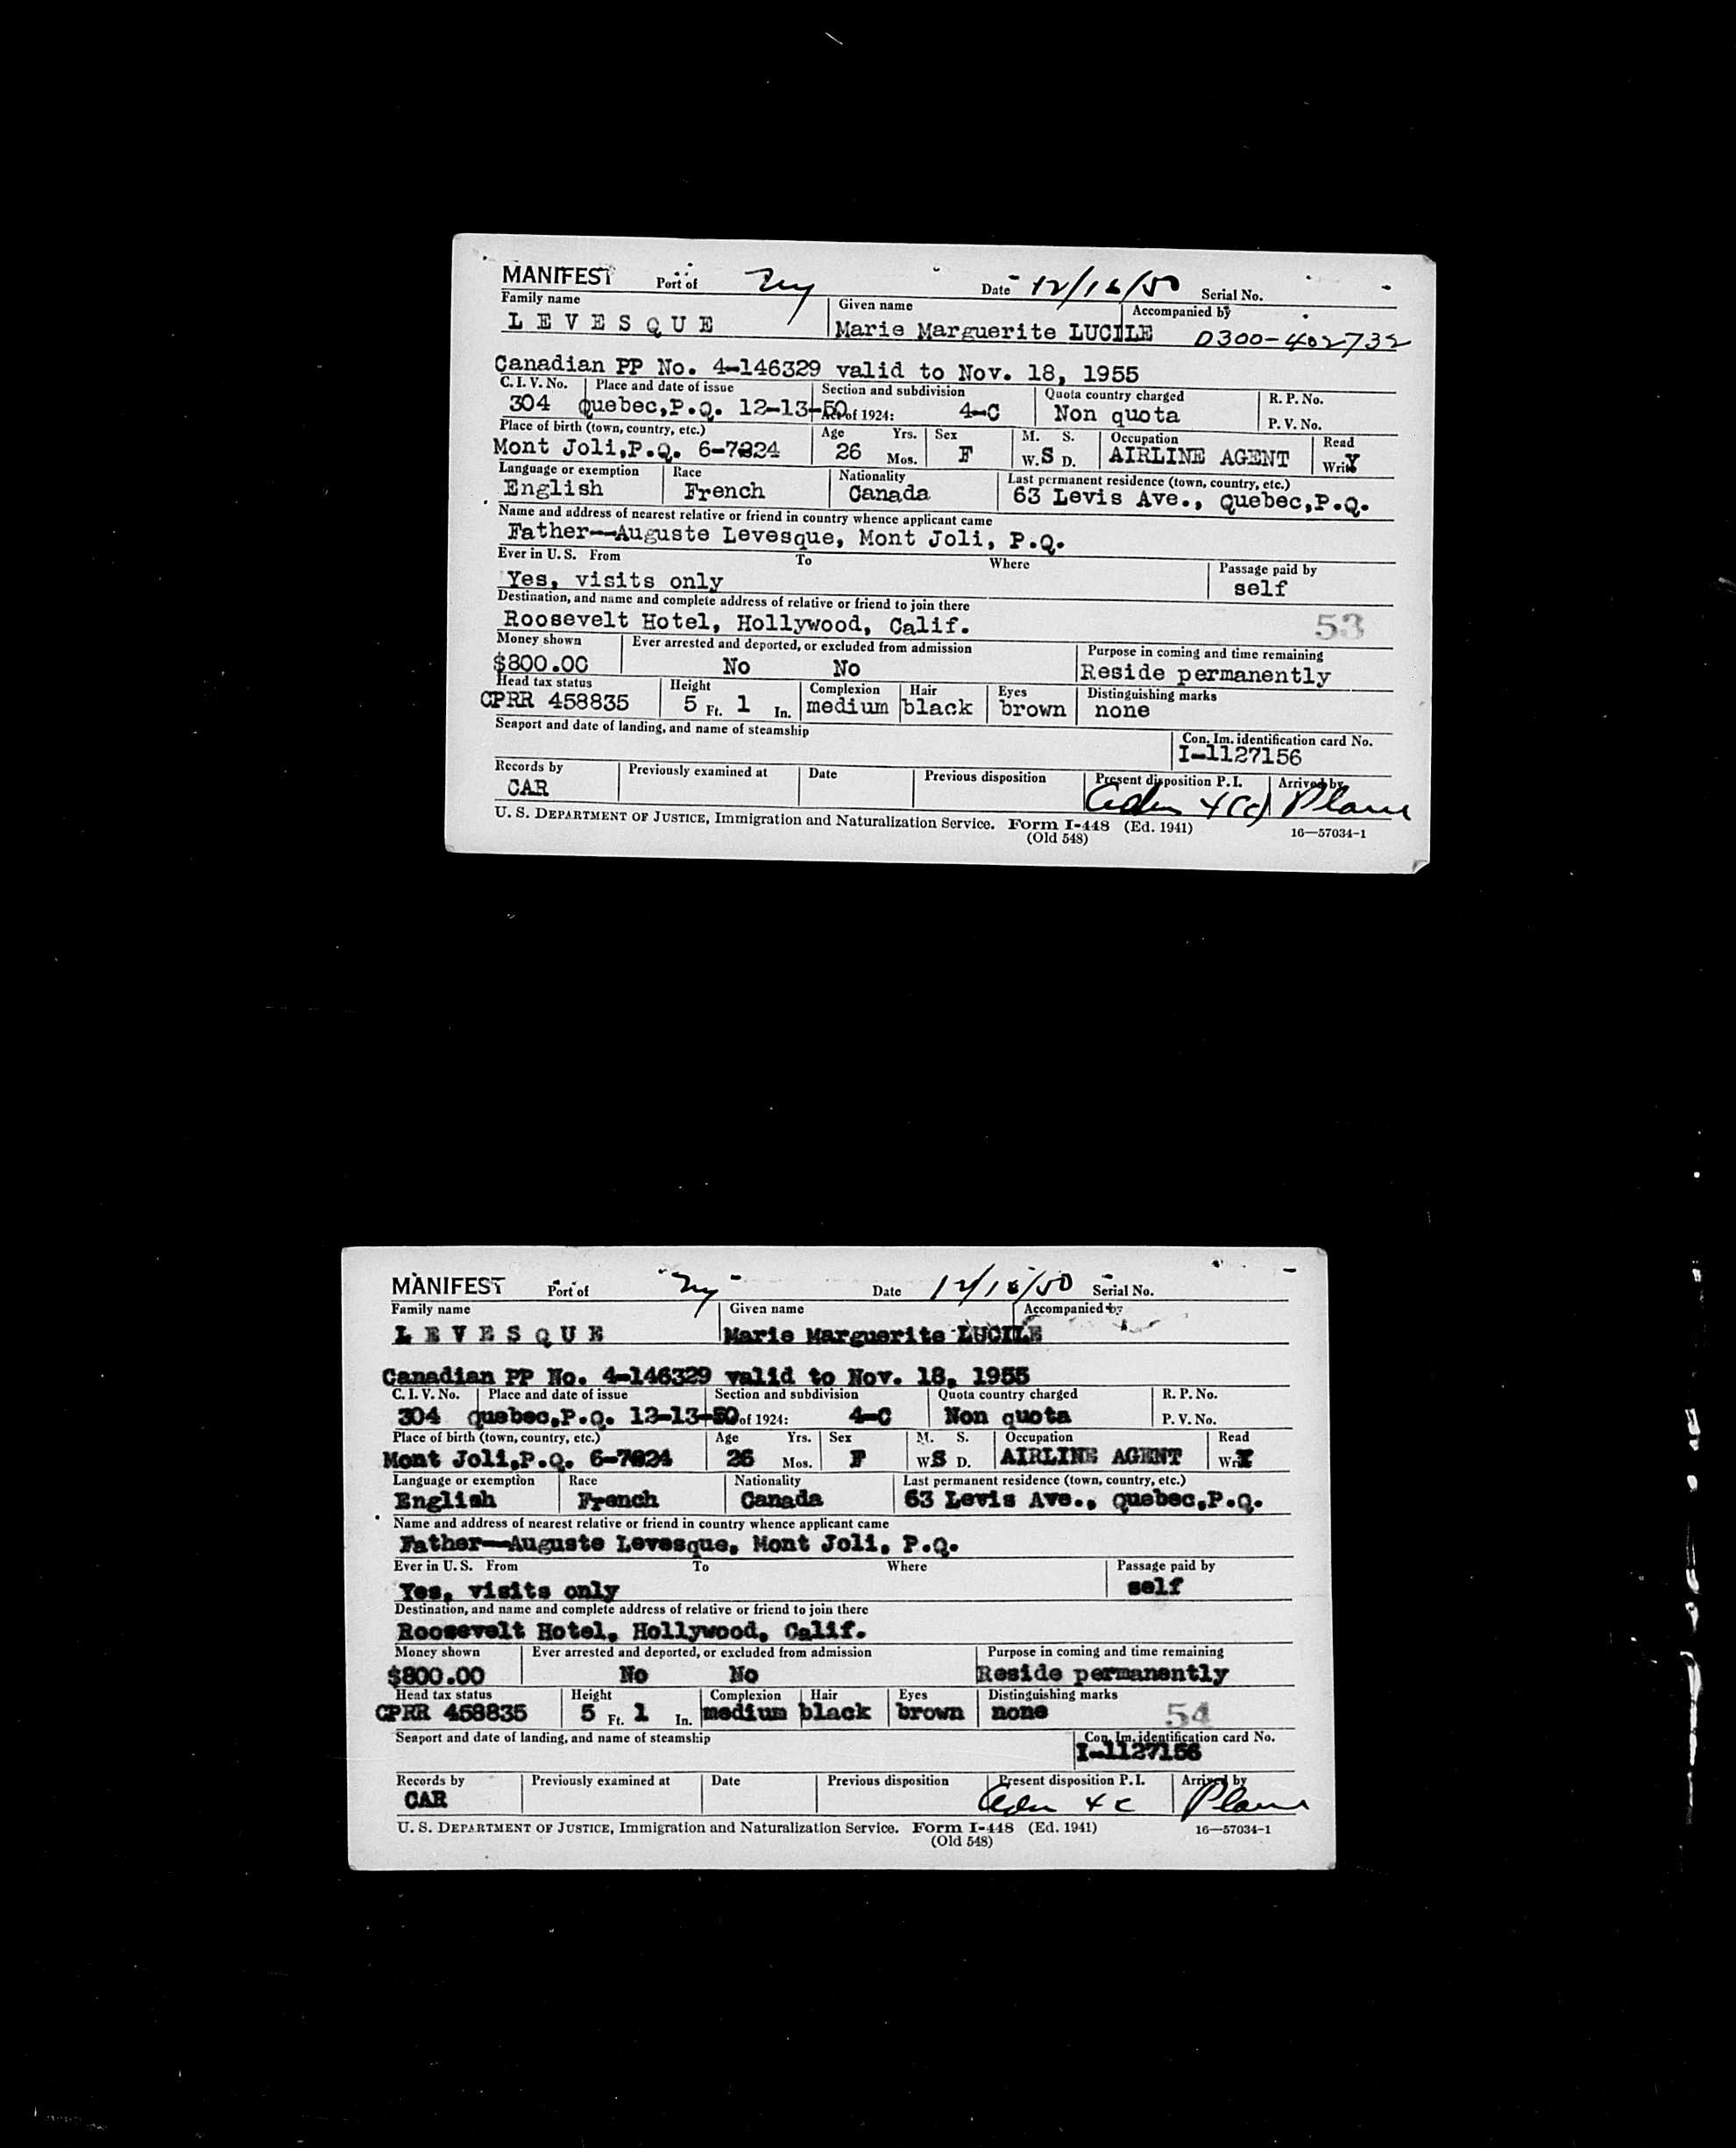 MANIFEST Port of NY Date 12/16/50 Serial No.
Family name Given name Accompanied by
LEVESQUE Marie Marguerite LUCILE 0300-402732
Canadian PP No. 4-146329 valid to Nov. 18, 1955
C. I. V. No. Place and date of issue Section and subdivision Quota country charged R. P. No.
304 Quebec,P.Q. 12-13-50 of 1924: 4-C Non quota P. V. No.
Place of birth (town, country, etc.) Age Yrs. Sex M. S. Occupation Read
Mont Joli,P.Q. 6-7-24 26 Mos. F W. S D. AIRLINE AGENT Write Y
Language or exemption Race Nationality Last permanent residence (town, country, etc.)
English French Canada 63 Levis Ave., Quebec,P.Q.
Name and address of nearest relative or friend in country whence applicant came
Father--Auguste Levesque, Mont Joli, P.Q.
Ever in U. S. From To Where Passage paid by
Yes, visits only self
Destination, and name and complete address of relative or friend to join there
Roosevelt Hotel, Hollywood, Calif. 53
Money shown Ever arrested and deported, or excluded from admission Purpose in coming and time remaining
$800.00 No No Reside permanently
Head tax status Height Complexion Hair Eyes Distinguishing marks
CPRR 458835 5 Ft. 1 In. medium black brown none
Seaport and date of landing, and name of steamship Con. Im. identification card No.
I-1127156
Records by Previously examined at Date Previous disposition Present disposition P. I. Arrived by
CAR Plane
U. S. DEPARTMENT OF JUSTICE, Immigration and Naturalization Service. Form I-448 (Ed. 1941) 16—57034-1
(Old 548)
MANIFEST Port of NY Date 12/16/50 Serial No.
Family name Given name Accompanied by
LEVESQUE Marie Marguerite LUCILE
Canadian PP No. 4-146329 valid to Nov. 18, 1955
C. I. V. No. Place and date of issue Section and subdivision Quota country charged R. P. No.
304 Quebec,P.Q. 12-13-50 of 1924: 4-C Non quota P. V. No.
Place of birth (town, country, etc.) Age Yrs. Sex M. S. Occupation Read
Mont Joli,P.Q. 6-7-24 26 Mos. F W. S D. AIRLINE AGENT Write Y
Language or exemption Race Nationality Last permanent residence (town, country, etc.)
English French Canada 63 Levis Ave., Quebec,P.Q.
Name and address of nearest relative or friend in country whence applicant came
Father--Auguste Levesque, Mont Joli, P.Q.
Ever in U. S. From To Where Passage paid by
Yes, visits only self
Destination, and name and complete address of relative or friend to join there
Roosevelt Hotel, Hollywood, Calif.
Money shown Ever arrested and deported, or excluded from admission Purpose in coming and time remaining
$800.00 No No Reside permanently
Head tax status Height Complexion Hair Eyes Distinguishing marks
CPRR 458835 5 Ft. 1 In. medium black brown none 54
Seaport and date of landing, and name of steamship Con. Im. identification card No.
I-1127156
Records by Previously examined at Date Previous disposition Present disposition P. I. Arrived by
CAR Plane
U. S. DEPARTMENT OF JUSTICE, Immigration and Naturalization Service. Form I-448 (Ed. 1941) 16—57034-1
(Old 548)